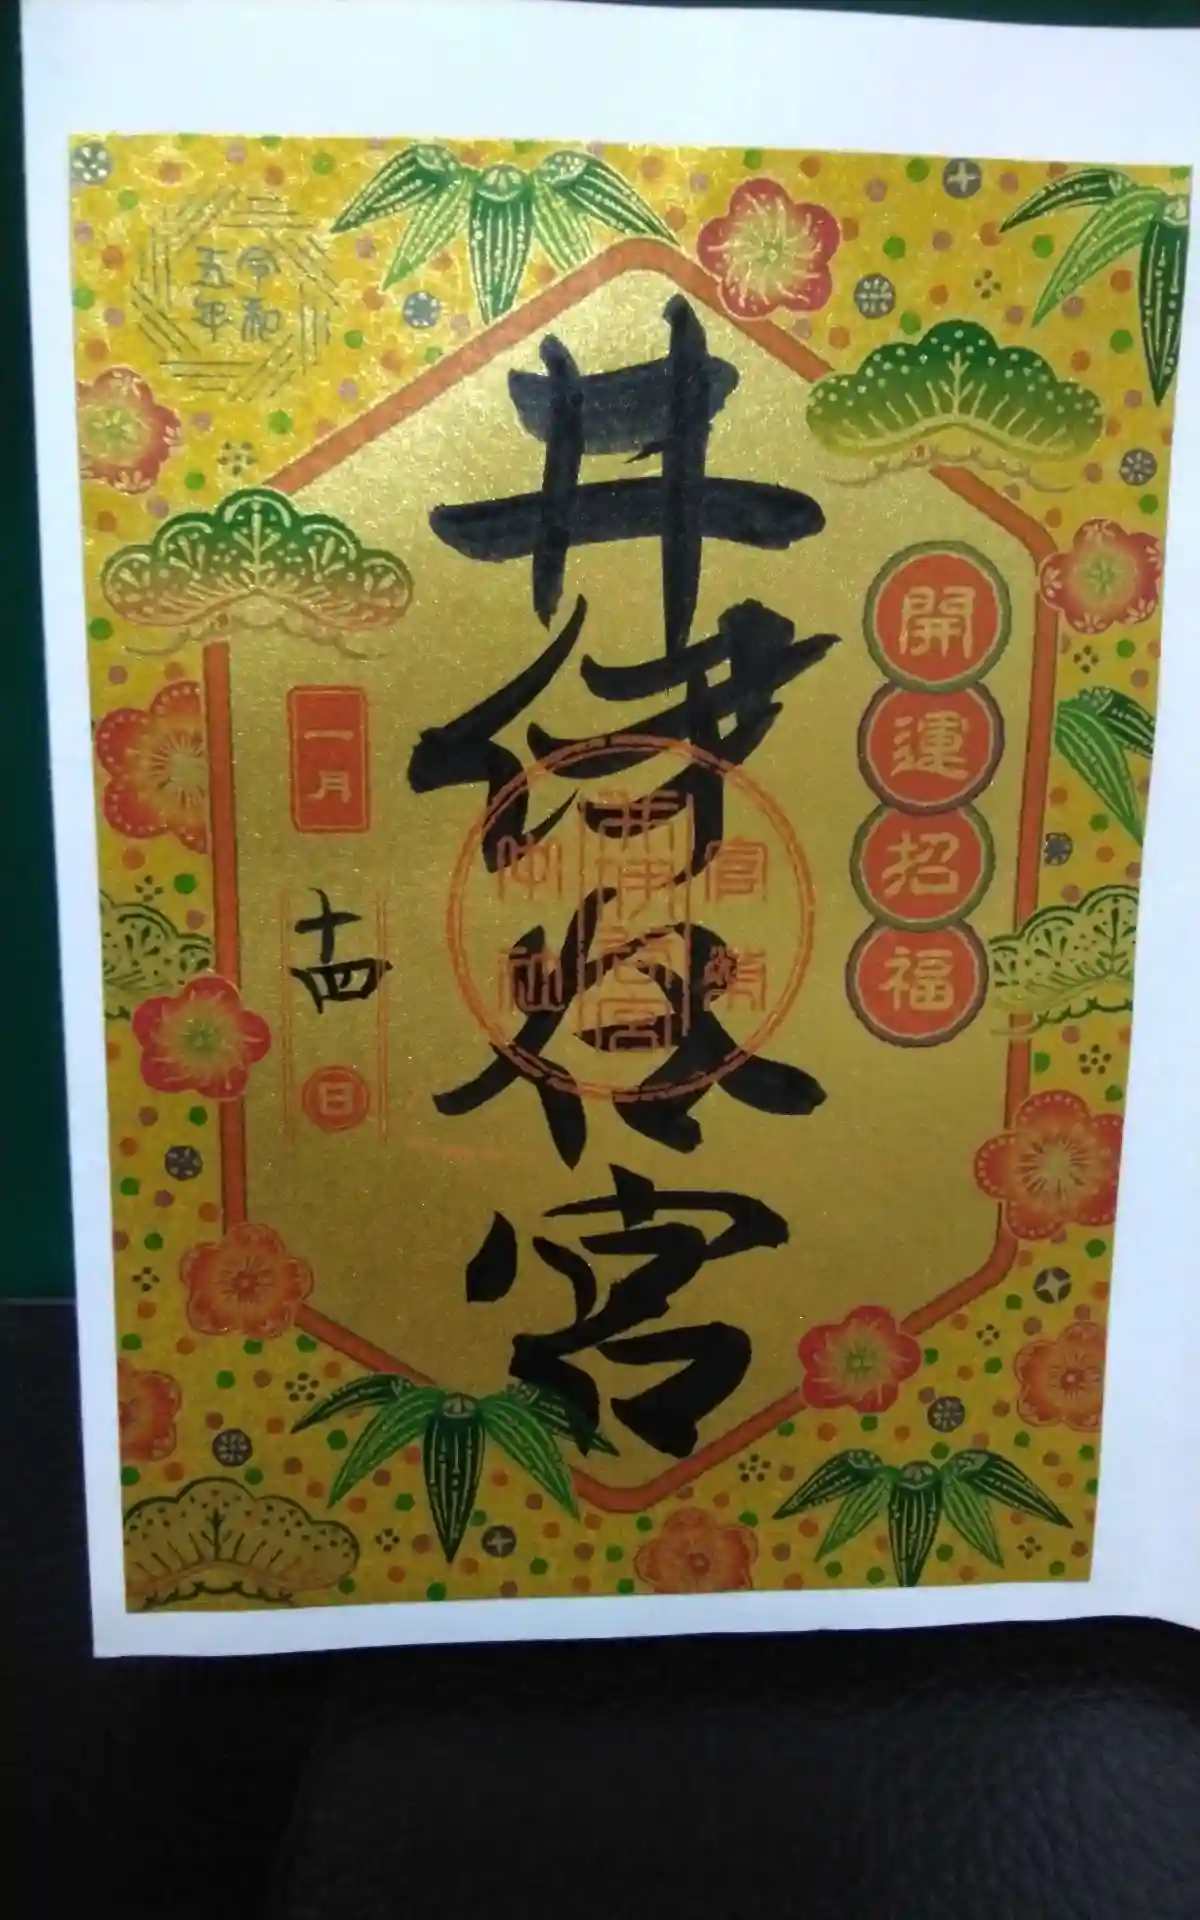 開運招福
井伊谷宮
官幣
井伊谷宮
中社
令和
五年
一月
十四
日